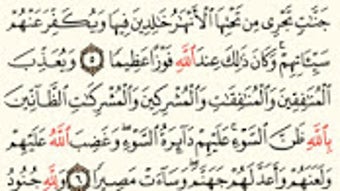 جَنَّٰتٍ تَجْرِى مِن تَحْتِهَا ٱلْأَنْهَٰرُ خَٰلِدِينَ فِيهَا وَيُكَفِّرَ عَنْهُمْ
سَيِّـَٔاتِهِمْ ۚ وَكَانَ ذَٰلِكَ عِندَ ٱللَّهِ فَوْزًا عَظِيمًا ٥ وَيُعَذِّبَ
ٱلْمُنَٰفِقِينَ وَٱلْمُنَٰفِقَٰتِ وَٱلْمُشْرِكِينَ وَٱلْمُشْرِكَٰتِ ٱلظَّآنِّينَ
بِٱللَّهِ ظَنَّ ٱلسَّوْءِ ۚ عَلَيْهِمْ دَآئِرَةُ ٱلسَّوْءِ ۖ وَغَضِبَ ٱللَّهُ عَلَيْهِمْ
وَلَعَنَهُمْ وَأَعَدَّ لَهُمْ جَهَنَّمَ ۖ وَسَآءَتْ مَصِيرًا ٦ وَلِلَّهِ جُنُودُ